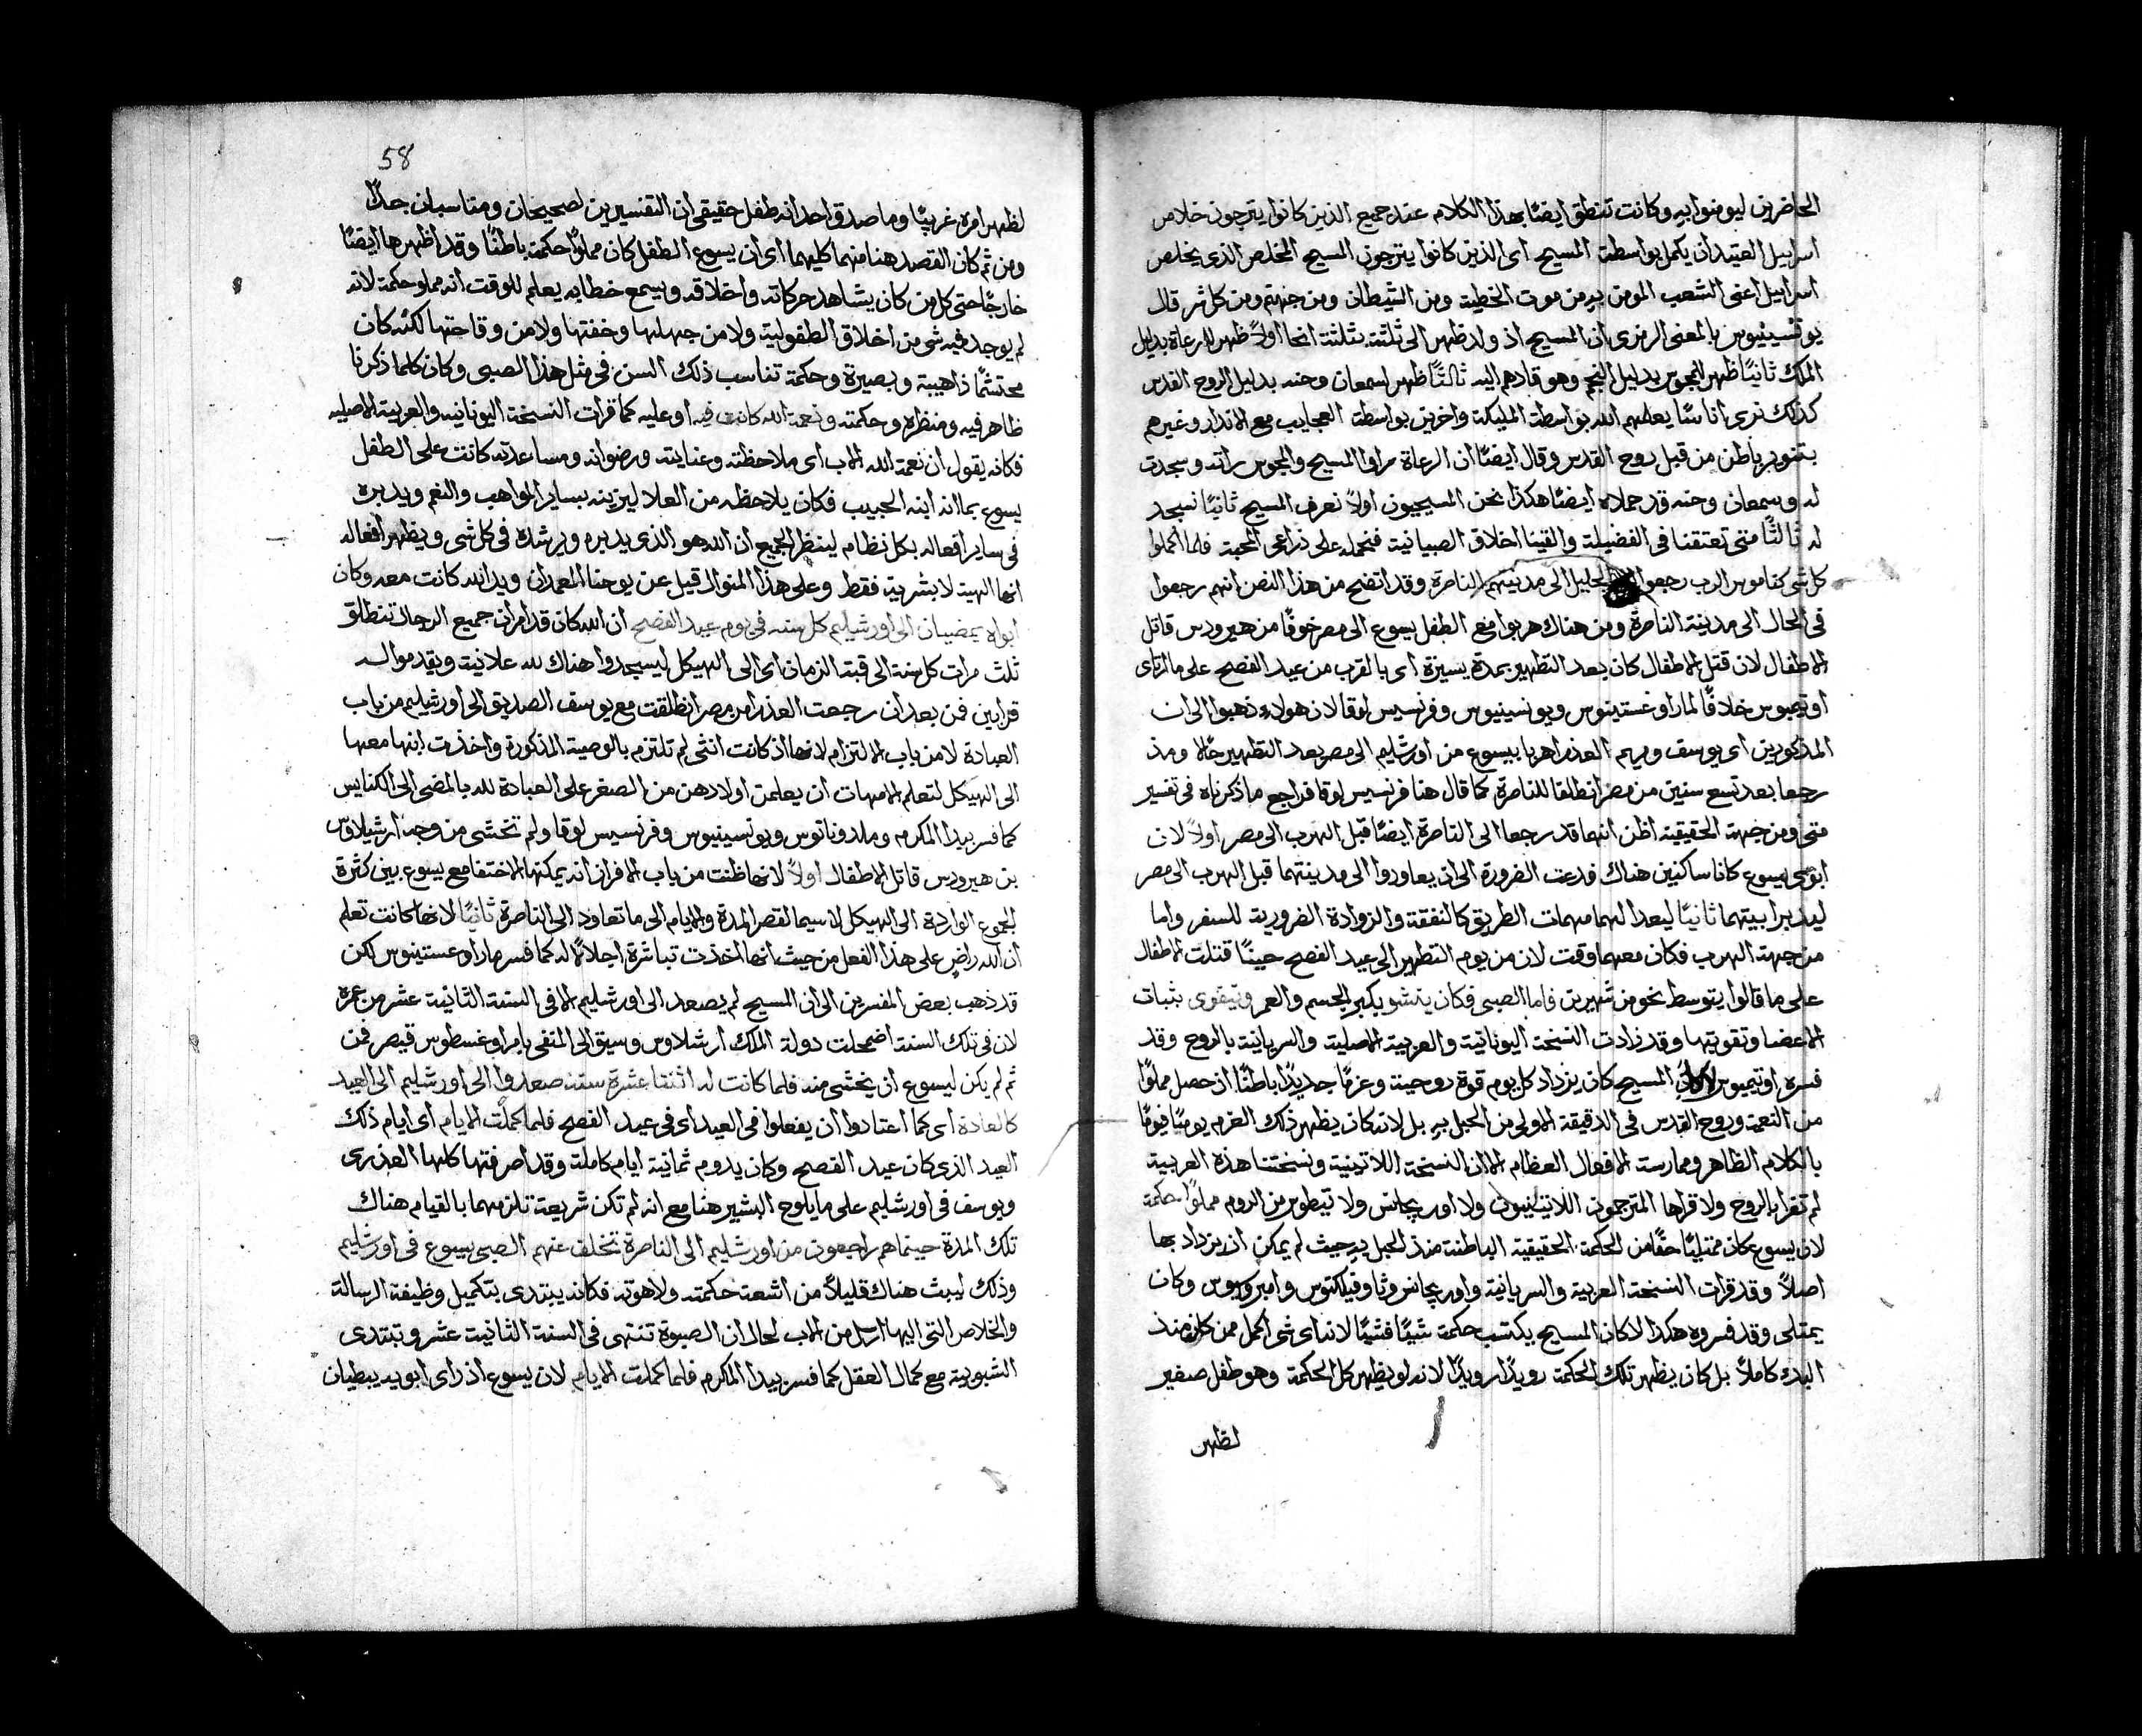 الحاضرين ليومنوا به وكانت تنطق ايضًا بهذا الكلام عند جميع الذين كانوا يترجون خلاص
اسراييل العتيد ان يكمل بواسطة المسيح اى الذين كانوا يترجون المسيح المخلص الذى يخلص
اسراييل اعنى الشعب المومن به من موت الخطية ومن الشيطان ومن جهنم ومن كل شر قال
يونسينيوس بالمعنى الرمزى ان المسيح اذ ولد ظهر الى ثلثة بثلثة انحا اولاً ظهر للرعاة بدليل
الملاك ثانيًا ظهر للمجوس بدليل النجم وهو قادهم اليه ثالثًا ظهر لسمعان وحنه بدليل الروح القدس
كذلك نرى اناسًا يعلمهم الله بواسطة المليكة واخرين بواسطة العجايب مع الانذار وغيرهم
بتنوير باطن من قبل روح القدس وقال ايضًا ان الرعاة مراوا المسيح والمجوس راته وسجدت
له وسمعان وحنه قد حملاه ايضًا هكذا نحن المسيحيون اولاً نعرف المسيح ثانيًا نسجد
له ثالثًا متى تعتقنا فى الفضيلة والقينا اخلاق الصبيانية فنحمله على ذراعى المحبة فلما اكملوا
كل شى كناموس الرب رجعوا الجليل الى مدينتهم الناصرة وقد اتضح من هذا النص انهم رجعوا
فى الحال الى مدينة الناصرة ومن هناك هربوا مع الطفل يسوع الى مصر خوفًا من هيرودس قاتل
الاطفال لان قتل الاطفال كان بعد التطهير بمدة يسيرة اى بالقرب من عيد الفصح على ما ارتاى
اوتيميوس خلافًا لمار اوغستينوس ويونسينيوس وفرنسيس لوقا لان هولاء ذهبوا الى ان
المذكورين اى يوسف ومريم العذرا هربا بيسوع من اورشليم الى مصر بعد التطهير حالا ومذ
رجعا بعد تسع سنين من مصر انطلقا للناصرة كما قال هنا فرنسيس لوقا فراجع ما ذكرناه فى تفسير
متى ومن جهة الحقيقة اظن انهما قد رجعا الى الناصرة ايضًا قبل الهرب الى مصر اولاً لان
ابوى يسوع كانا ساكنين هناك فدعت الضرورة الى ان يعاودوا الى مدينتهما قبل الهرب الى مصر
ليدبرا بيتهما ثانيًا ليعدا لهما مهمات الطريق كالنفقة والزوادة الضرورية للسفر واما
من جهة الهرب فكان معهما وقت لان من يوم التطهير الى عيد الفصح حينًا قتلت الاطفال
على ما قالوا يتوسط نحو من شهرين فاما الصبى فكان ينشو بكبر الجسم والعمر ويتقوى بثبات
الاعضا وتقويتها وقد زادت النسخة اليونانية والعربية الاصلية والسريانية بالروح وقد
فسره اوتيميوس المسيح كان يزداد كل يوم قوة روحية وعزمًا جديدًا باطنًا اذ حصل مملوًا
من النعمة وروح القدس فى الدقيقة الاولى من الحبل به بل لانه كان يظهر ذلك العزم يوميًا فيومًا
بالكلام الظاهر وممارسة الافعال العظام الا ان النسخة اللاتينية ونسختنا هذه العربية
لم تقرا بالروح ولا قراها المترجمون اللاتينيون ولا اوريجانس ولا تيطوس من الروم مملوًا حكمة
لان يسوع كان ممتليًا حقًا من الحكمة الحقيقية الباطنة منذ الحبل به حيث لم يمكن ان يزداد بها
اصلاً وقد قرات النسخة العربية والسريانية واوريجانس وثاوفيلكتوس وامبروسيوس وكان
يمتلى وقد فسروه هكذا لا كان المسيح يكتسب حكمة شيًا فشيًا لانه اى شى اكمل ممن كان منذ
البدء كاملاً بل كان يظهر تلك الحكمة رويدًا رويدًا لانه لو يظهر كل الحكمة وهو طفل صغير
لظهر
58
لظهر امره غريبًا وما صدق احد انه طفل حقيقى ان التفسيرين لصحيحان ومتناسبان جدًا
ومن ثم كان القصد هنا منهما كليهما اى ان يسوع الطفل كان مملوًا حكمة باطنًا وقد اظهرها ايضًا
خارجًا حتى كل من كان يشاهد حركاته واخلاقه ويسمع خطابه يعلم للوقت انه مملو حكمة لانه
لم يوجد فيه شى من اخلاق الطفولية ولا من جهلها وخفتها ولا من وقاحتها لكنه كان
محتشمًا ذا هيبة وبصيرة وحكمة تناسب ذلك السن فى مثل هذا الصبى وكان كلما ذكرنا
ظاهر فيه ومنظره وحكمته ونعمة الله كانت فيه او عليه كما قرات النسخة اليونانيه والعربية الاصليه
فكانه يقول ان نعمة الله الاب اى ملاحظته وعنايته ورضوانه ومساعدته كانت على الطفل
يسوع بما انه ابنه الحبيب فكان يلاحظه من العلا ليزينه بساير المواهب والنعم ويدبره
فى ساير افعاله بكل نظام لينظر الجميع ان الله هو الذى يدبره ويرشده فى كل شى ويظهر افعاله
انها الهية لا بشرية فقط وعلى هذا المنوال قيل عن يوحنا المعمدان ويد الله كانت معه وكان
ابواه يمضيان الى اورشليم كل سنه فى يوم عيد الفصح ان الله كان قد امر ان جميع الرجال تنطلق
ثلث مرات كل سنة الى قبة الزمان اى الى الهيكل ليسجدوا هناك لله علانية ويقدموا له
قرابين فمن بعد ان رجعت العذرا من مصر انطلقت مع يوسف الصديق الى اورشليم من باب
العبادة لا من باب الالتزام لانها اذ كانت انثى لم تلتزم بالوصية المذكورة واخذت ابنها معها
الى الهيكل لتعلم الامهات ان يعلمن اولادهن من الصغر على العبادة لله بالمضى الى الكنايس
كما فسر بيدا المكرم وملدوناتوس ويونسينيوس وفرنسيس لوقا ولم تخشى من وجه ارشيلاوس
بن هيرودس قاتل الاطفال اولاً لانها ظنت من باب الافراز انه يمكنها الاختفا مع يسوع بين كثرة
الجموع الواردة الى الهيكل لاسيما لقصر المدة والايام الى ما تعاود الى الناصرة ثانيًا لانها كانت تعلم
ان الله راضٍ على هذا الفعل من حيث انها اخذت تباشره اجلالاً له كما فسر مار اوغستينوس لكن
قد ذهب بعض المفسرين الى ان المسيح لم يصعد الى اورشليم الا فى السنة الثانية عشر من عمره
لان فى تلك السنة اضمحلت دولة الملك ارشلاوس وسيق الى المنفى بامر اوغسطوس قيصر فمن
ثم لم يكن ليسوع ان يخشى منه فلما كانت له اثنتا عشرة سنه صعدوا الى اورشليم الى العيد
كالعادة اى كما اعتادوا ان يفعلوا فى العيد اى فى عيد الفصح فلما كملت الايام اى ايام ذلك
العيد الذى كان عيد الفصح وكان يدوم ثمانية ايام كاملة وقد اصرفتها كلها العذرى
ويوسف فى اورشليم على ما يلوح البشير هنا مع انه لم تكن شريعة تلزمهما بالقيام هناك
تلك المدة حينما هم راجعون من اورشليم الى الناصرة تخلف عنهم الصبى يسوع فى اورشليم
وذلك ليبث هناك قليلاً من اشعة حكمته ولاهوته فكانه يبتدى بتكميل وظيفة الرسالة
والخلاص التى اليها ارسل من الاب لحال ان الصبوة تنتهى فى السنة الثانية عشر وتبتدى
الشبوبية مع كمال العقل كما فسر بيدا المكرم فلما كملت الايام لان يسوع اذ راى ابويه يبطيان